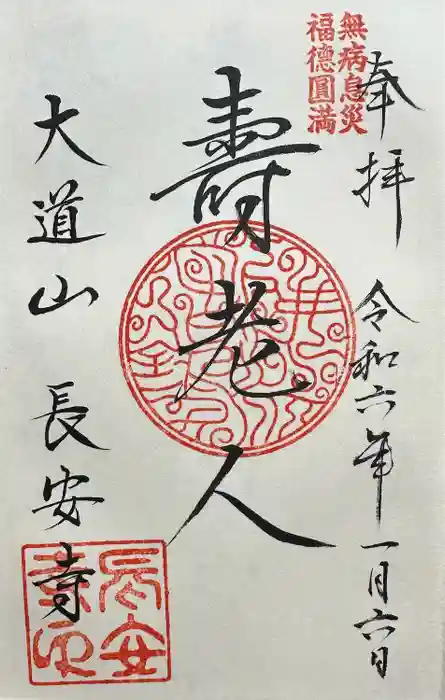 無病息災
福德圓滿
奉拝
令和六年一月六日
壽老人
大道山
長安寺